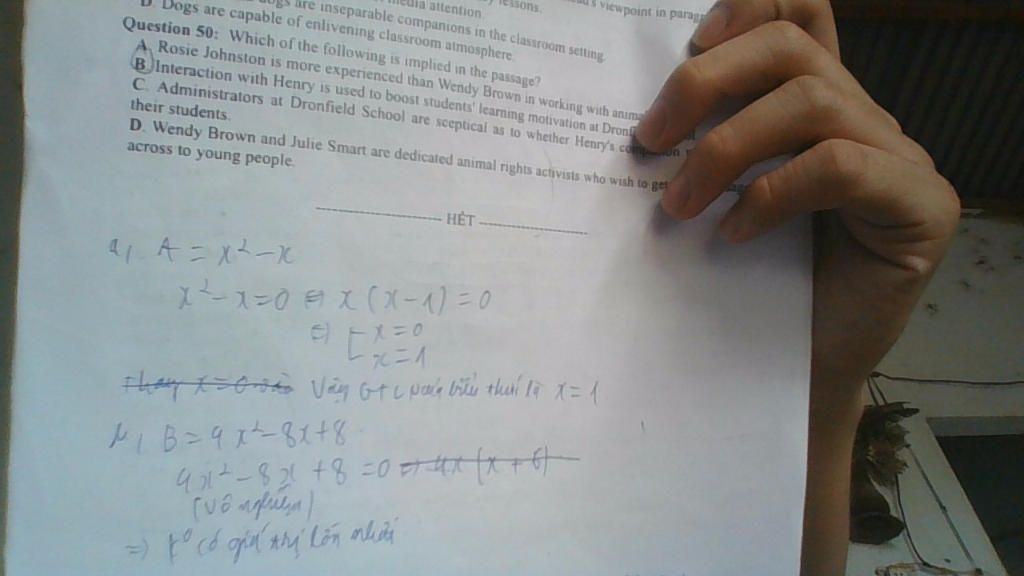 media attention.
lessons.
's viewpoint in parag
dogs are inseparable companions in the classroom setting.
D. Dogs are capable of enlivening classroom atmosphere.
Question 50: Which of the following is implied in the passage?
A. Rosie Johnston is more experienced than Wendy Brown in working with anima
B. Interaction with Henry is used to boost students' learning motivation at Dronf
C. Administrators at Dronfield School are sceptical as to whether Henry's
their students.
D. Wendy Brown and Julie Smart are dedicated animal rights activists who wish to get
across to young people.
HẾT
a, A = x² - x
x² - x = 0 ⇔ x (x - 1) = 0
⇔ [ x = 0
x = 1
Thay x = 0 vào Vậy GTL của biểu thức là x = 1
B = 4x² - 8x + 8
4x² - 8x + 8 = 0 ⇔ 4x (x + 6)
(vô nghiệm)
=> k⁰ có giá trị lớn nhất